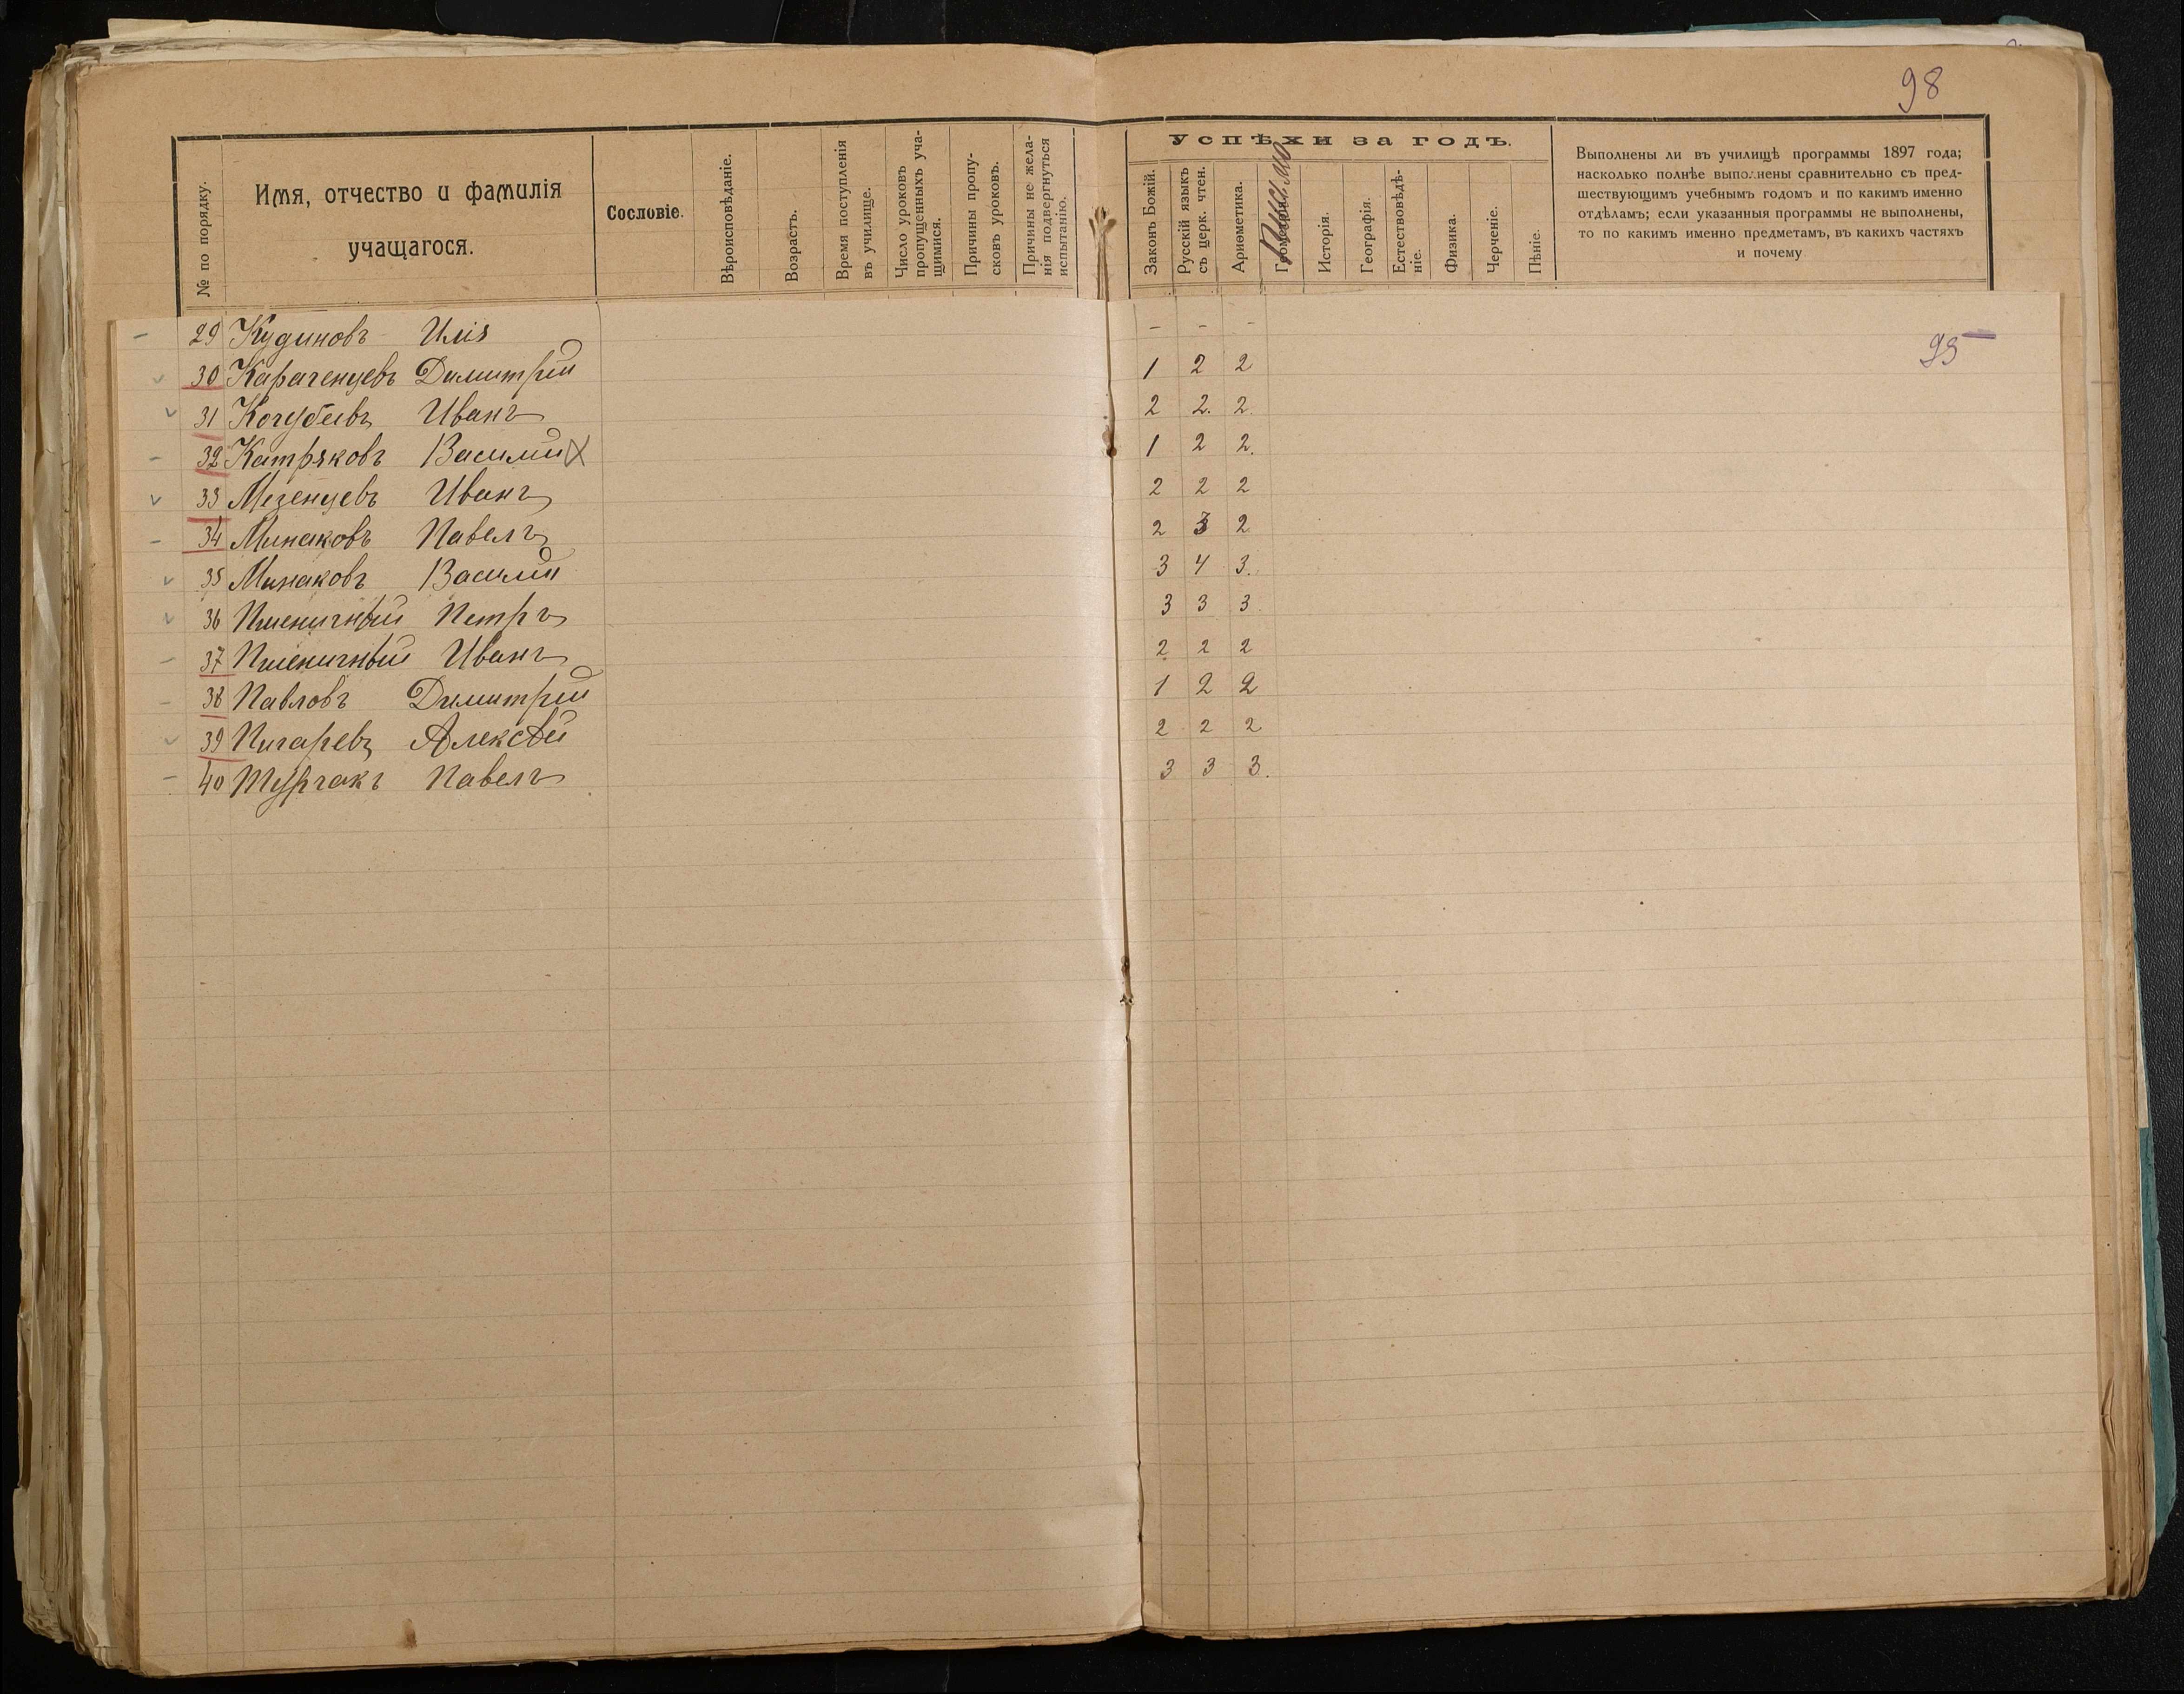 98
№ по порядку.
Имя, отчество и фамилія
учащагося.
Сословіе.
Вѣроисповѣданіе.
Возрастъ.
Время поступленія
въ училище.
Число уроковъ
пропущенныхъ уча-
щимися.
Причины пропу-
сковъ уроковъ.
Причины не жела-
нія подвергнуться
испытанію.
Успѣхи за годъ.
Законъ Божій.
Русскій языкъ
съ церк. чтен.
Ариѳметика.
Письмо
Исторія.
Географія.
Естествовѣдѣ-
ніе.
Физика.
Черченіе.
Пѣніе.
Выполнены ли въ училищѣ программы 1897 года;
насколько полнѣе выполнены сравнительно съ пред-
шествующимъ учебнымъ годомъ и по какимъ именно
отдѣламъ; если указанныя программы не выполнены,
то по какимъ именно предметамъ, въ какихъ частяхъ
и почему
95
– 29 Кудиновъ Илія – – –
✓ 30 Караченцевъ Димитрій 1 2 2
✓ 31 Кочубеевъ Иванъ 2 2. 2
– 32 Катряковъ Василий X 1 2 2.
✓ 33 Мезенцевъ Иванъ 2 2 2
– 34 Минаковъ Павелъ 2 3 2
✓ 35 Минаковъ Василий 3 4 3.
✓ 36 Пшеничный Петръ 3 3 3
– 37 Пшеничный Иванъ 2 2 2
– 38 Павловъ Димитрій 1 2 2
✓ 39 Пигаревъ Алексѣй 2 2 2
– 40 Турчакъ Павелъ 3 3 3.